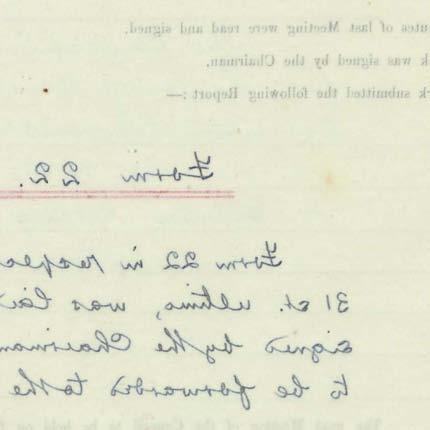 utes of last Meeting were read and signed.
k was signed by the Chairman.
rk submitted the following Report :—
Form 22.
Form 22 in respec
31st. ultimo, was lai
signed by the Chairman
to be forwarded to the